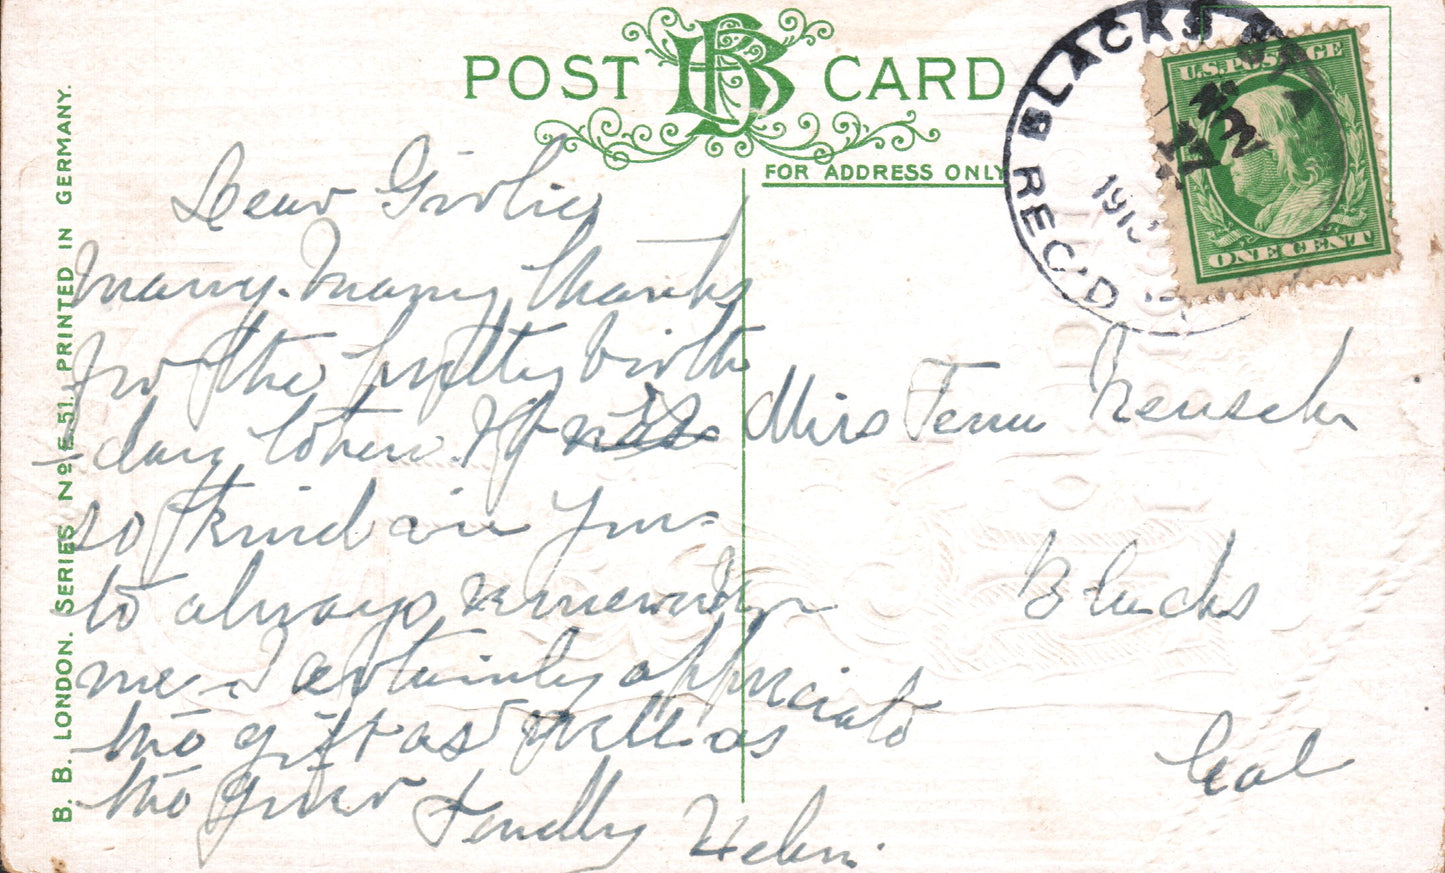 POST CARD
FOR ADDRESS ONLY
B. B. LONDON. SERIES Nº E 51. PRINTED IN GERMANY.
BLACKS
REC'D
U.S. POSTAGE
ONE CENT
Dear Girlie
Many, Many thanks
for the pretty birth
day token. It
so kind in you
to always remember
me I certainly appreciate
the gift as well as
the giver Fondly Helen.
Miss Fern
Blacks
Cal